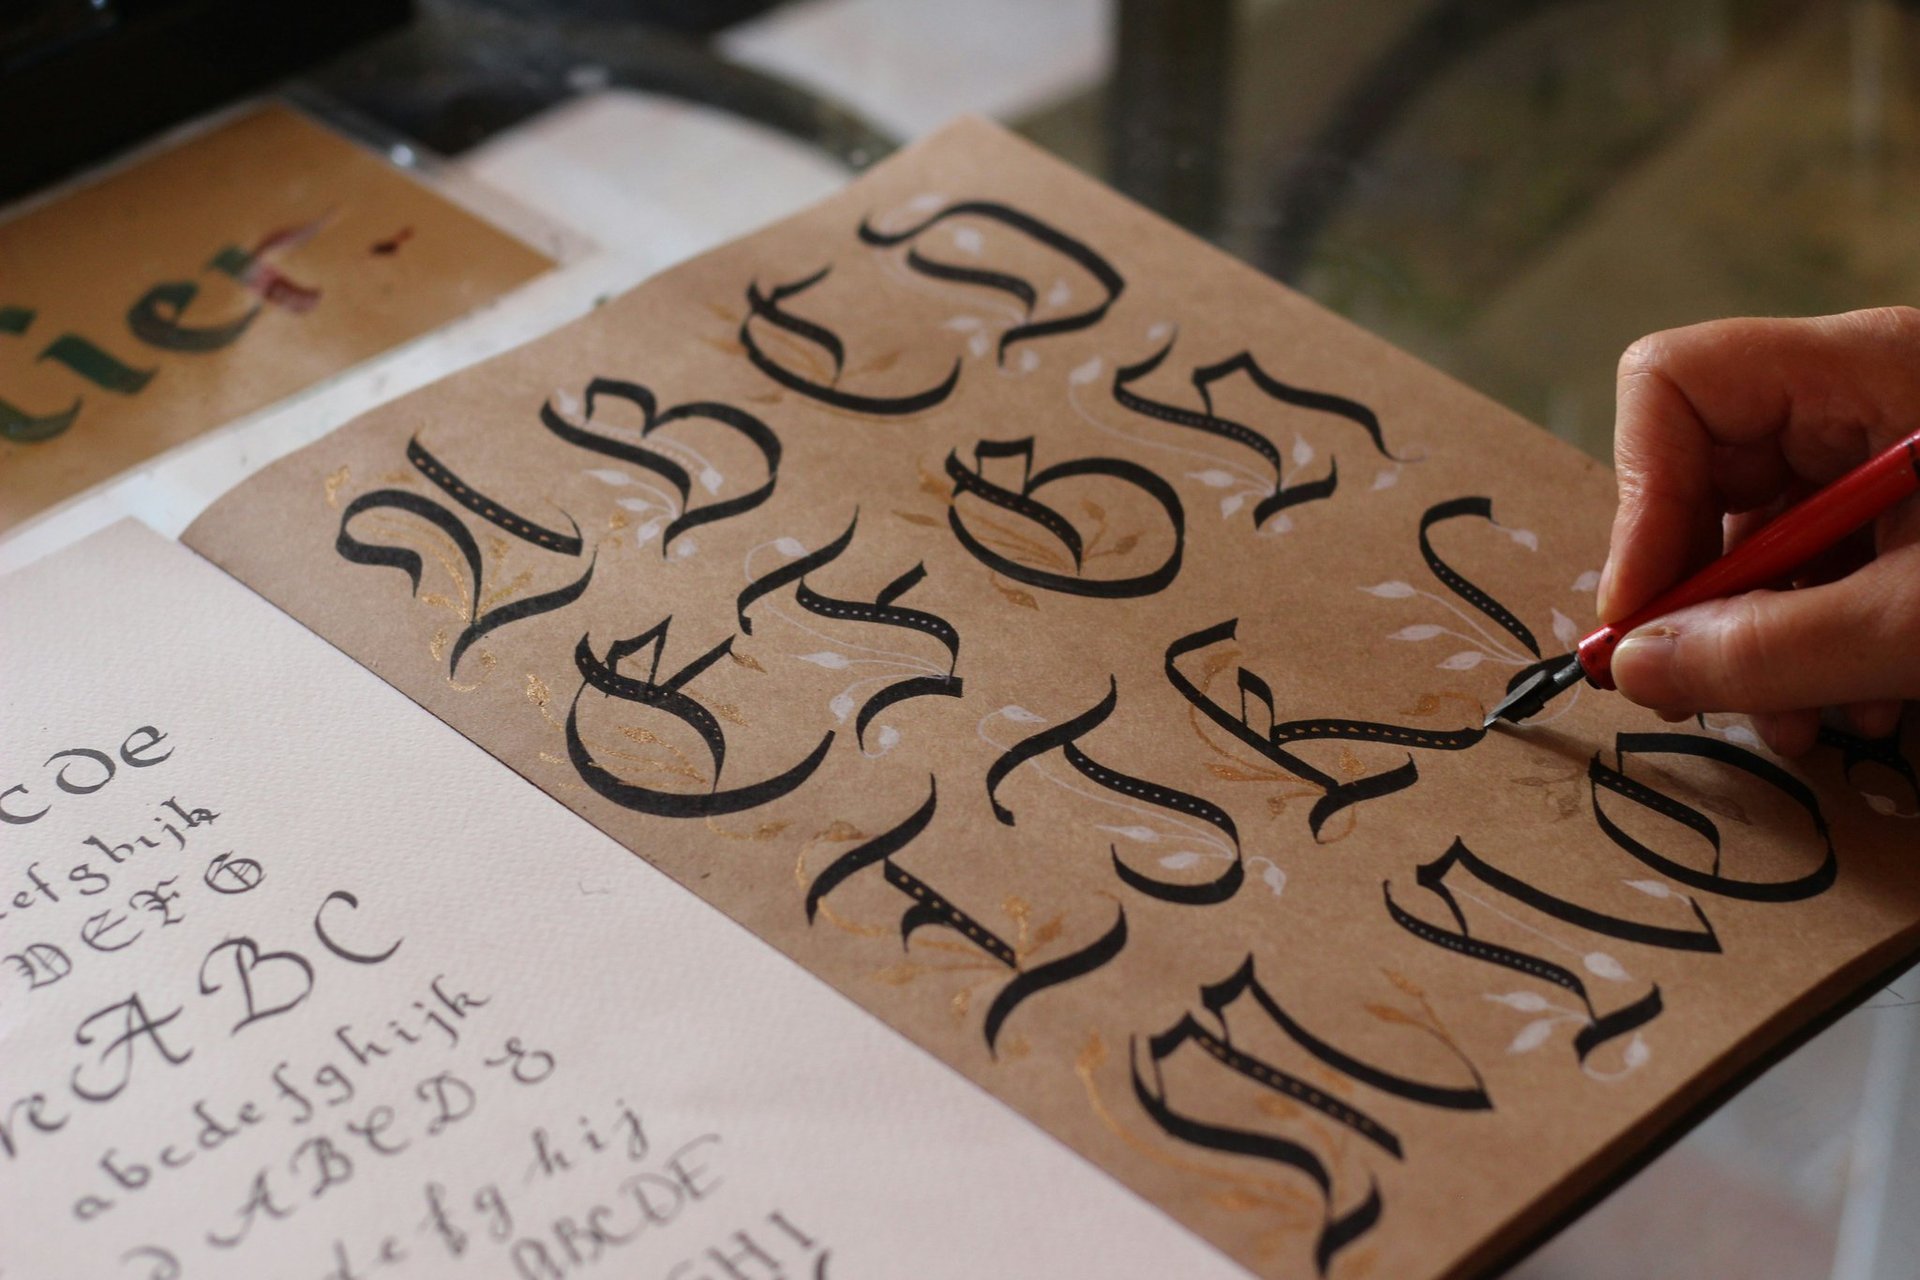 ier
A B C D
E F G H
I J K L
M N O
c d e
e f g h i j k
D E F G
A B C
a b c d e f g h i j k
A B C D E
e f g h i j
A B C D E
G H I